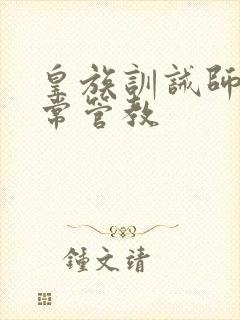 皇族訓誡師
常管教
鍾文靖